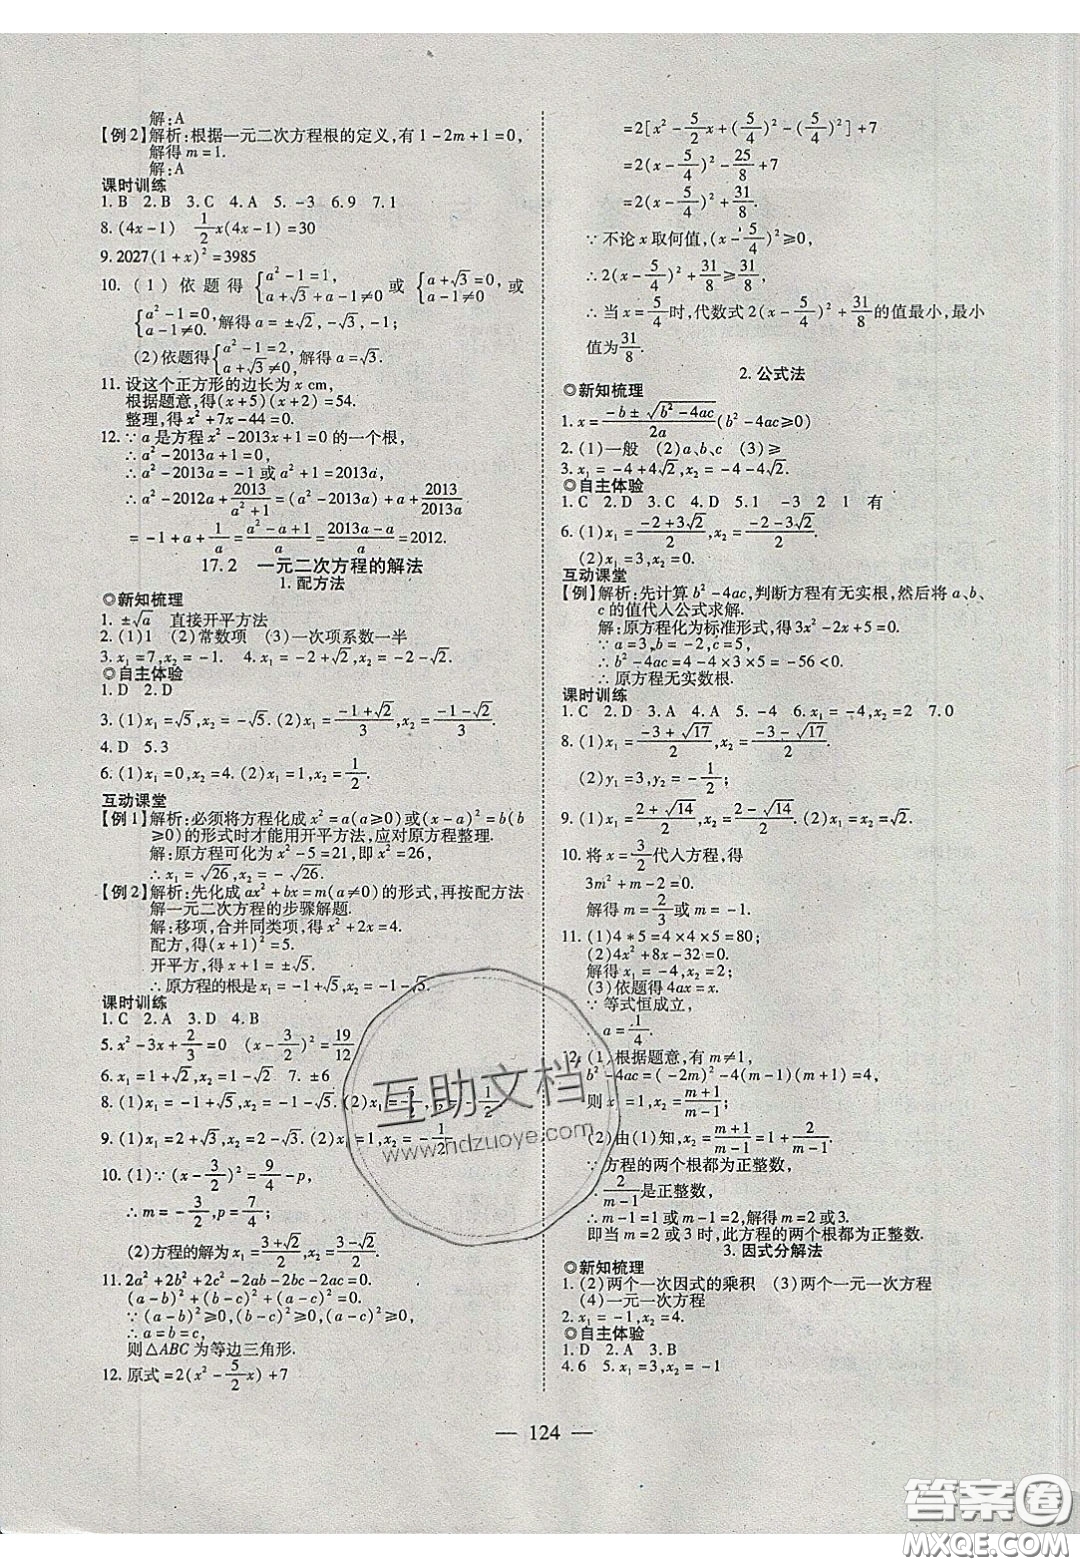 解:A
【例2】解析:根据一元二次方程根的定义,有1-2m+1=0,
解得m=1.
解:A
课时训练
1.B 2.B 3.C 4.A 5.-3 6.9 7.1
8.(4x-1) 1/2 x(4x-1)=30
9.2027(1+x)²=3985
10.(1)依题得{a²-1=1, a+√3+a-1≠0 或{a+√3=0, a²-1≠0 或
{a²-1=0, a+√3≠0,解得a=±√2,-√3,-1;
(2)依题得{a²-1=2, a+√3≠0,解得a=√3.
11.设这个正方形的边长为x cm,
根据题意,得(x+5)(x+2)=54.
整理,得x²+7x-44=0.
12.∵a是方程x²-2013x+1=0的一个根,
∴a²-2013a+1=0,
∴a²-2013a=-1或a²+1=2013a,
∴a²-2012a+2013/(a²+1)=(a²-2013a)+a+2013/2013a
=-1+a+1/a=(a²-a+1)/a=(2013a-a)/a=2012.
17.2 一元二次方程的解法
1.配方法
◎新知梳理
1.±√a 直接开平方法
2.(1)1 (2)常数项 (3)一次项系数一半
3.x₁=7,x₂=-1. 4.x₁=-2+√2,x₂=-2-√2.
◎自主体验
1.D 2.D
3.(1)x₁=√5,x₂=-√5.(2)x₁=(-1+√2)/3,x₂=(-1-√2)/3.
4.D 5.3
6.(1)x₁=0,x₂=4.(2)x₁=1,x₂=1/2.
互动课堂
【例1】解析:必须将方程化成x²=a(a≥0)或(x-a)²=b(b
≥0)的形式时才能用开平方法,应对原方程整理.
解:原方程可化为x²-5=21,即x²=26,
∴x₁=√26,x₂=-√26.
【例2】解析:先化成ax²+bx=m(a≠0)的形式,再按配方法
解一元二次方程的步骤解题.
解:移项,合并同类项,得x²+2x=4.
配方,得(x+1)²=5.
开平方,得x+1=±√5.
∴原方程的根是x₁=-1+√5,x₂=-1-√5.
课时训练
1.C 2.A 3.D 4.B
5.x²-3x+2/3=0 (x-3/2)²=19/12
6.x₁=1+√2,x₂=1-√2 7.±6
8.(1)x₁=-1+√5,x₂=-1-√5.(2)x₁=5/2,x₂=-1/2.
9.(1)x₁=2+√3,x₂=2-√3.(2)x₁=1,x₂=-1/2.
10.(1)∵(x-3/2)²=9/4-p,
∴m=-3/2,p=7/4;
(2)方程的解为x₁=(3+√2)/2,x₂=(3-√2)/2.
11.2a²+2b²+2c²-2ab-2bc-2ac=0.
(a-b)²+(b-c)²+(a-c)²=0.
∵(a-b)²≥0,(b-c)²≥0,(a-c)²≥0,
∴a=b=c,
则△ABC为等边三角形.
12.原式=2(x²-5/2 x)+7
=2[x²-5/2 x+(5/4)²-(5/4)²]+7
=2(x-5/4)²-25/8+7
=2(x-5/4)²+31/8.
∵不论x取何值,(x-5/4)²≥0,
∴2(x-5/4)²+31/8≥31/8,
∴当x=5/4时,代数式2(x-5/4)²+31/8的值最小,最小
值为31/8.
2.公式法
◎新知梳理
1.x=(-b±√(b²-4ac))/2a(b²-4ac≥0)
2.(1)一般 (2)a、b、c (3)≥
3.x₁=-4+4√2,x₂=-4-4√2.
◎自主体验
1.C 2.D 3.C 4.D 5.1 -3 2 1 有
6.(1)x₁=(-2+3√2)/2,x₂=(-2-3√2)/2.
(2)x₁=3,x₂=0.
互动课堂
【例】解析:先计算b²-4ac,判断方程有无实根,然后将a、b、
c的值代人公式求解.
解:原方程化为标准形式,得3x²-2x+5=0.
∵a=3,b=-2,c=5,
∴b²-4ac=4-4×3×5=-56<0.
∴原方程无实数根.
课时训练
1.C 2.D 3.A 4.A 5.-4 6.x₁=-4,x₂=2 7.0
8.(1)x₁=(-3+√17)/2,x₂=(-3-√17)/2;
(2)y₁=3,y₂=-1/2;
9.(1)x₁=(2+√14)/2,x₂=(2-√14)/2.(2)x₁=x₂=√2.
10.将x=3/2代人方程,得
3m²+m-2=0.
解得m=2/3或m=-1.
11.(1)4*5=4×4×5=80;
(2)4x²+8x-32=0.
解得x₁=-4,x₂=2;
(3)依题得4ax=x.
∵等式恒成立,
∴a=1/4.
12.(1)根据题意,有m≠1,
b²-4ac=(-2m)²-4(m-1)(m+1)=4,
则x₁=1,x₂=(m+1)/(m-1);
(2)由(1)知,x₂=(m+1)/(m-1)=1+2/(m-1).
∵方程的两个根都为正整数,
∴2/(m-1)是正整数,
∴m-1=1或m-1=2,解得m=2或3.
即当m=2或3时,此方程的两个根都为正整数.
3.因式分解法
◎新知梳理
1.(2)两个一次因式的乘积 (3)两个一元一次方程
(4)一元一次方程
2.x₁=-1,x₂=4.
◎自主体验
1.D 2.A 3.B
4.6 5.x₁=3,x₂=-1
— 124 —
互助文档
www.hdzuoye.com
答案圈
MXQE.COM